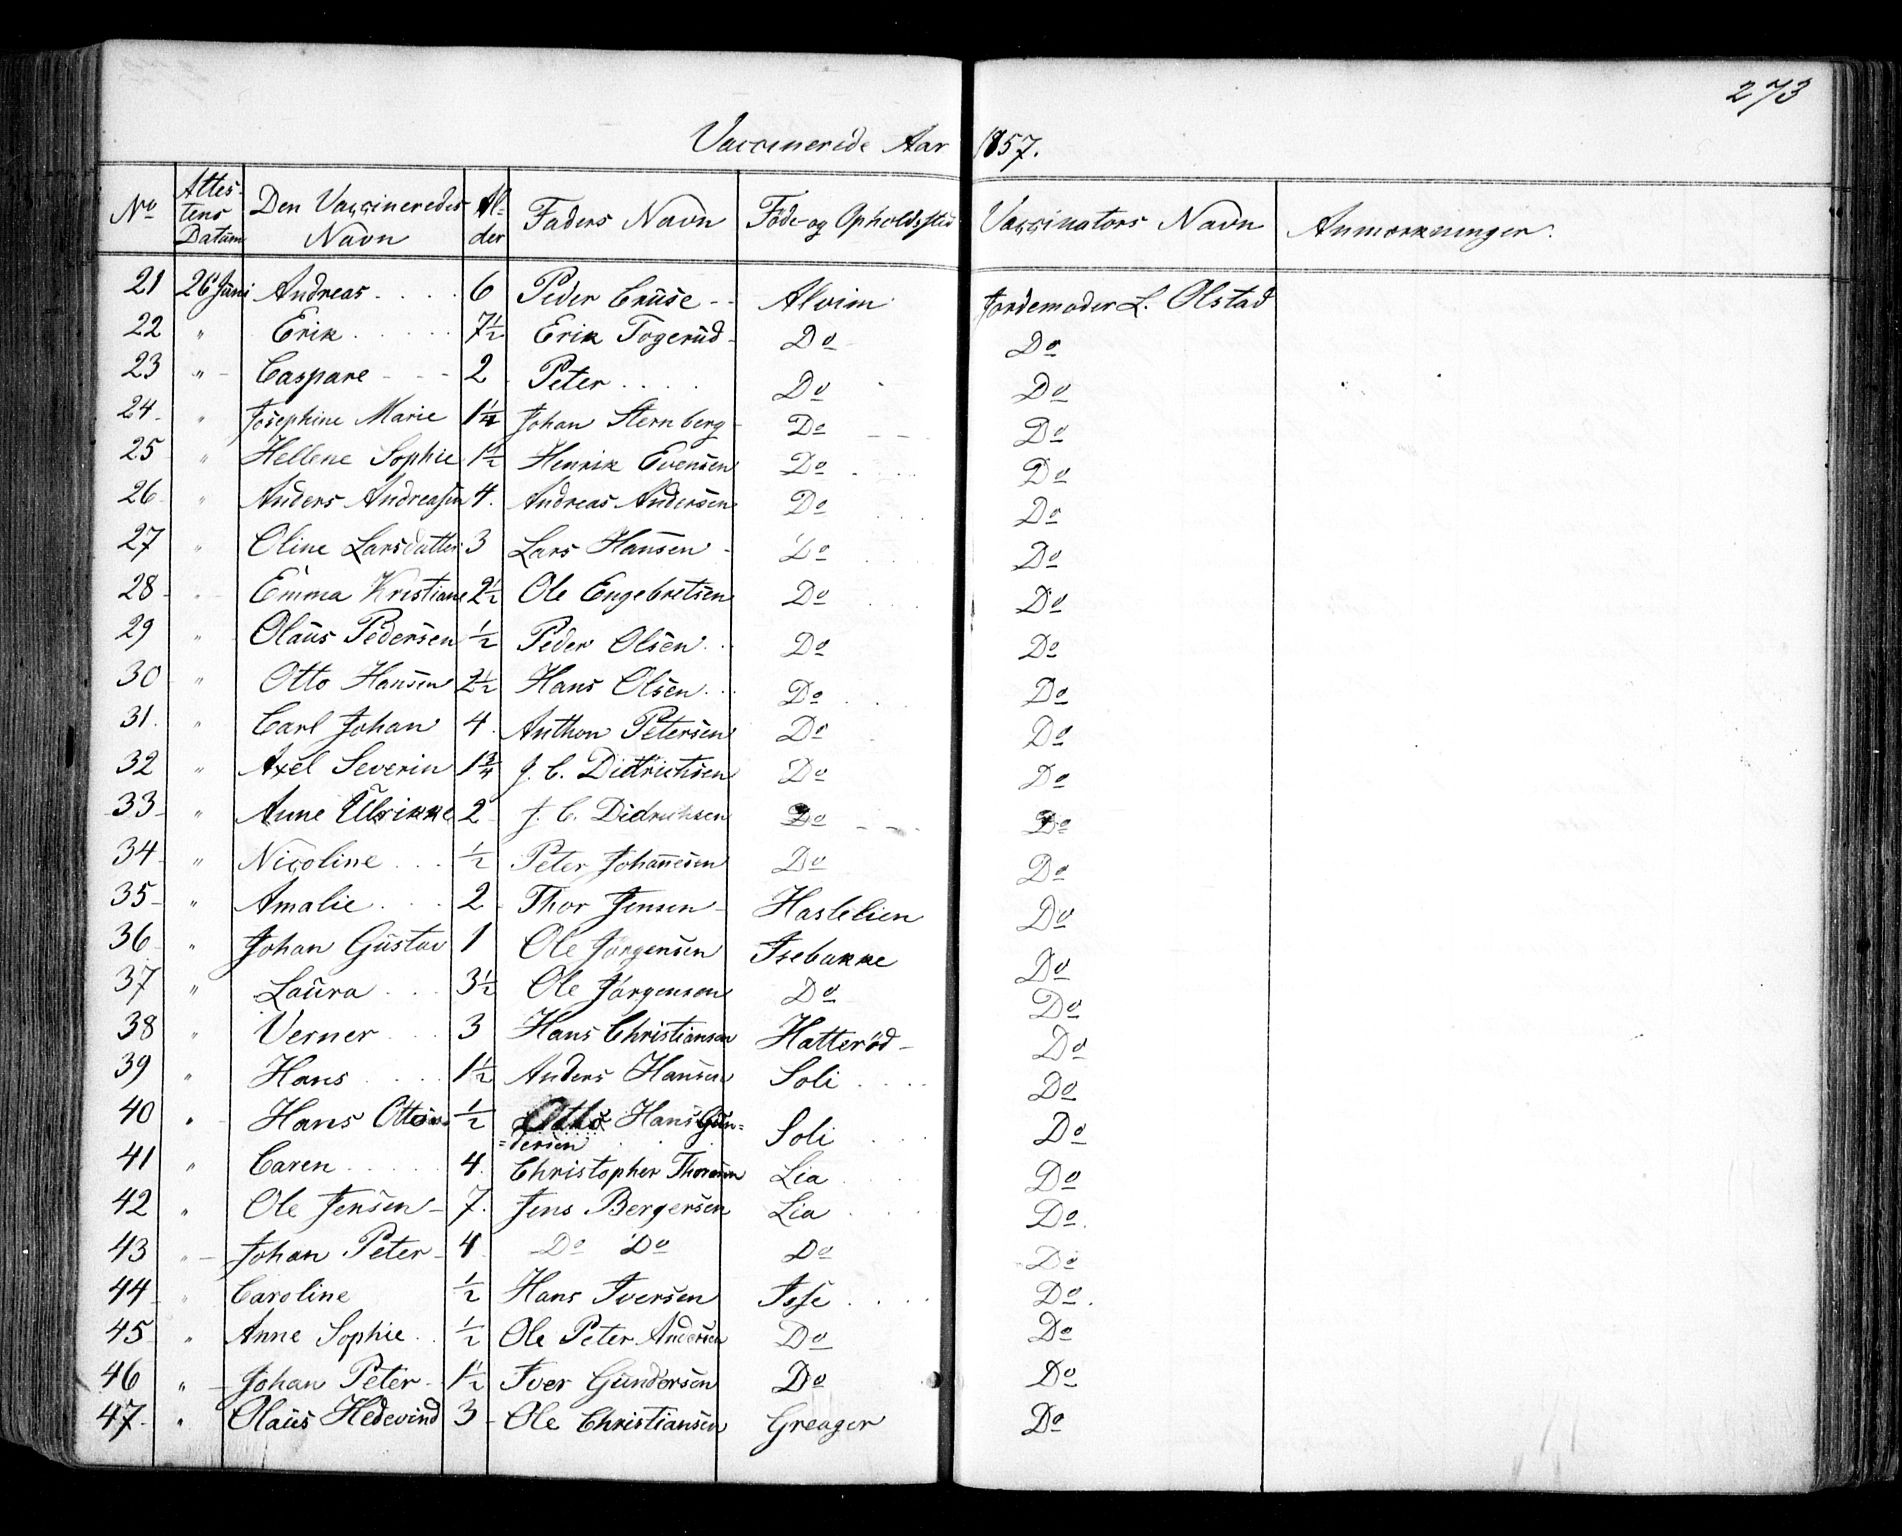 273
Vaccinerede Aar 1857.
No Attestens Datum Den Vaccineredes Navn Alder Faders Navn Føde- og Opholdssted Vaccinators Navn Anmærkninger.
21 26 Juni Andreas 6 Peder Cruse Alvim Jordemoder L. Olstad
22 " Erik 7½ Erik Togerud Do Do
23 " Caspare 2 Peter Do Do
24 " Josephine Marie 1¼ Johan Sternberg Do Do
25 " Hellene Sophie 1½ Henrik Evensen Do Do
26 " Anders Andreasen 4 Andreas Andersen Do Do
27 " Oline Larsdatter 3 Lars Hansen Do Do
28 " Emma Kristiane 2½ Ole Engebretsen Do Do
29 " Olaus Pedersen ½ Peder Olsen Do Do
30 " Otto Hansen 2½ Hans Olsen Do Do
31. " Carl Johan 4 Anthon Petersen Do Do
32 " Axel Severin 1¾ J. C. Didrichsen Do Do
33 " Anne Ulrikke 2 J. C. Didrichsen Do Do
34 " Nicoline ½ Peter Johannesen Do Do
35 " Amalie 2 Thor Jensen Haslelien Do
36 " Johan Gustav 1 Ole Jørgensen Isebakke Do
37 " Laura 3½ Ole Jørgensen Do Do
38 " Verner 3 Hans Christiansen Hatterød Do
39 " Hans 1½ Anders Hansen Soli Do
40 " Hans Otto ½ Hans Gun=
=dersen Soli Do
41 " Caren 4 Christopher Thoresen Lia Do
42 " Ole Jensen 7. Jens Bergersen Lia Do.
43 " Johan Peter 4 Do Do Do Do
44 " Caroline ½ Hans Iversen Isse Do.
45 " Anne Sophie ½ Ole Peter Andersen Do Do
46 " Johan Peter 1½ Iver Gundersen Do Do
47. " Olaus Hedevind 3 Ole Christiansen Greager Do